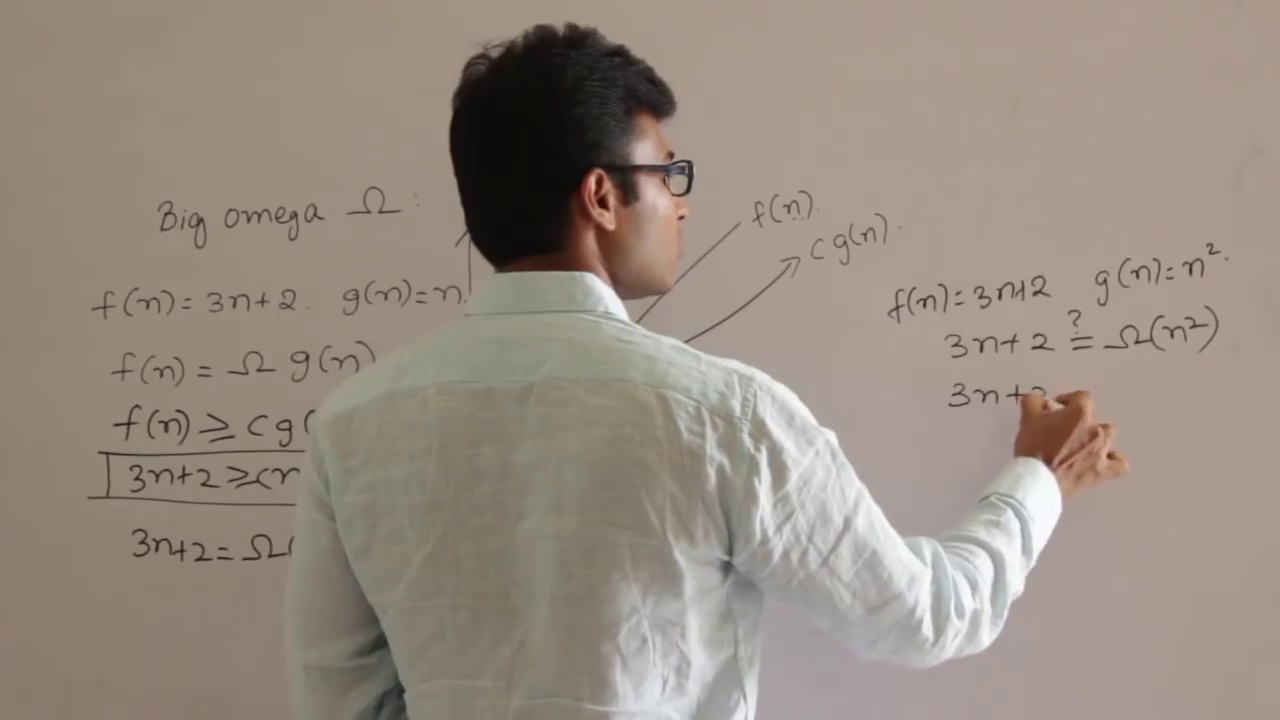 Big omega Ω :
f(n) = 3n+2. g(n)=n.
f(n) = Ω g(n)
f(n) ≥ cg(
3n+2 ≥ cn
3n+2 = Ω(
f(n).
c g(n).
f(n)=3n+2 g(n)=n².
?
3n+2 = Ω(n²)
3n+2